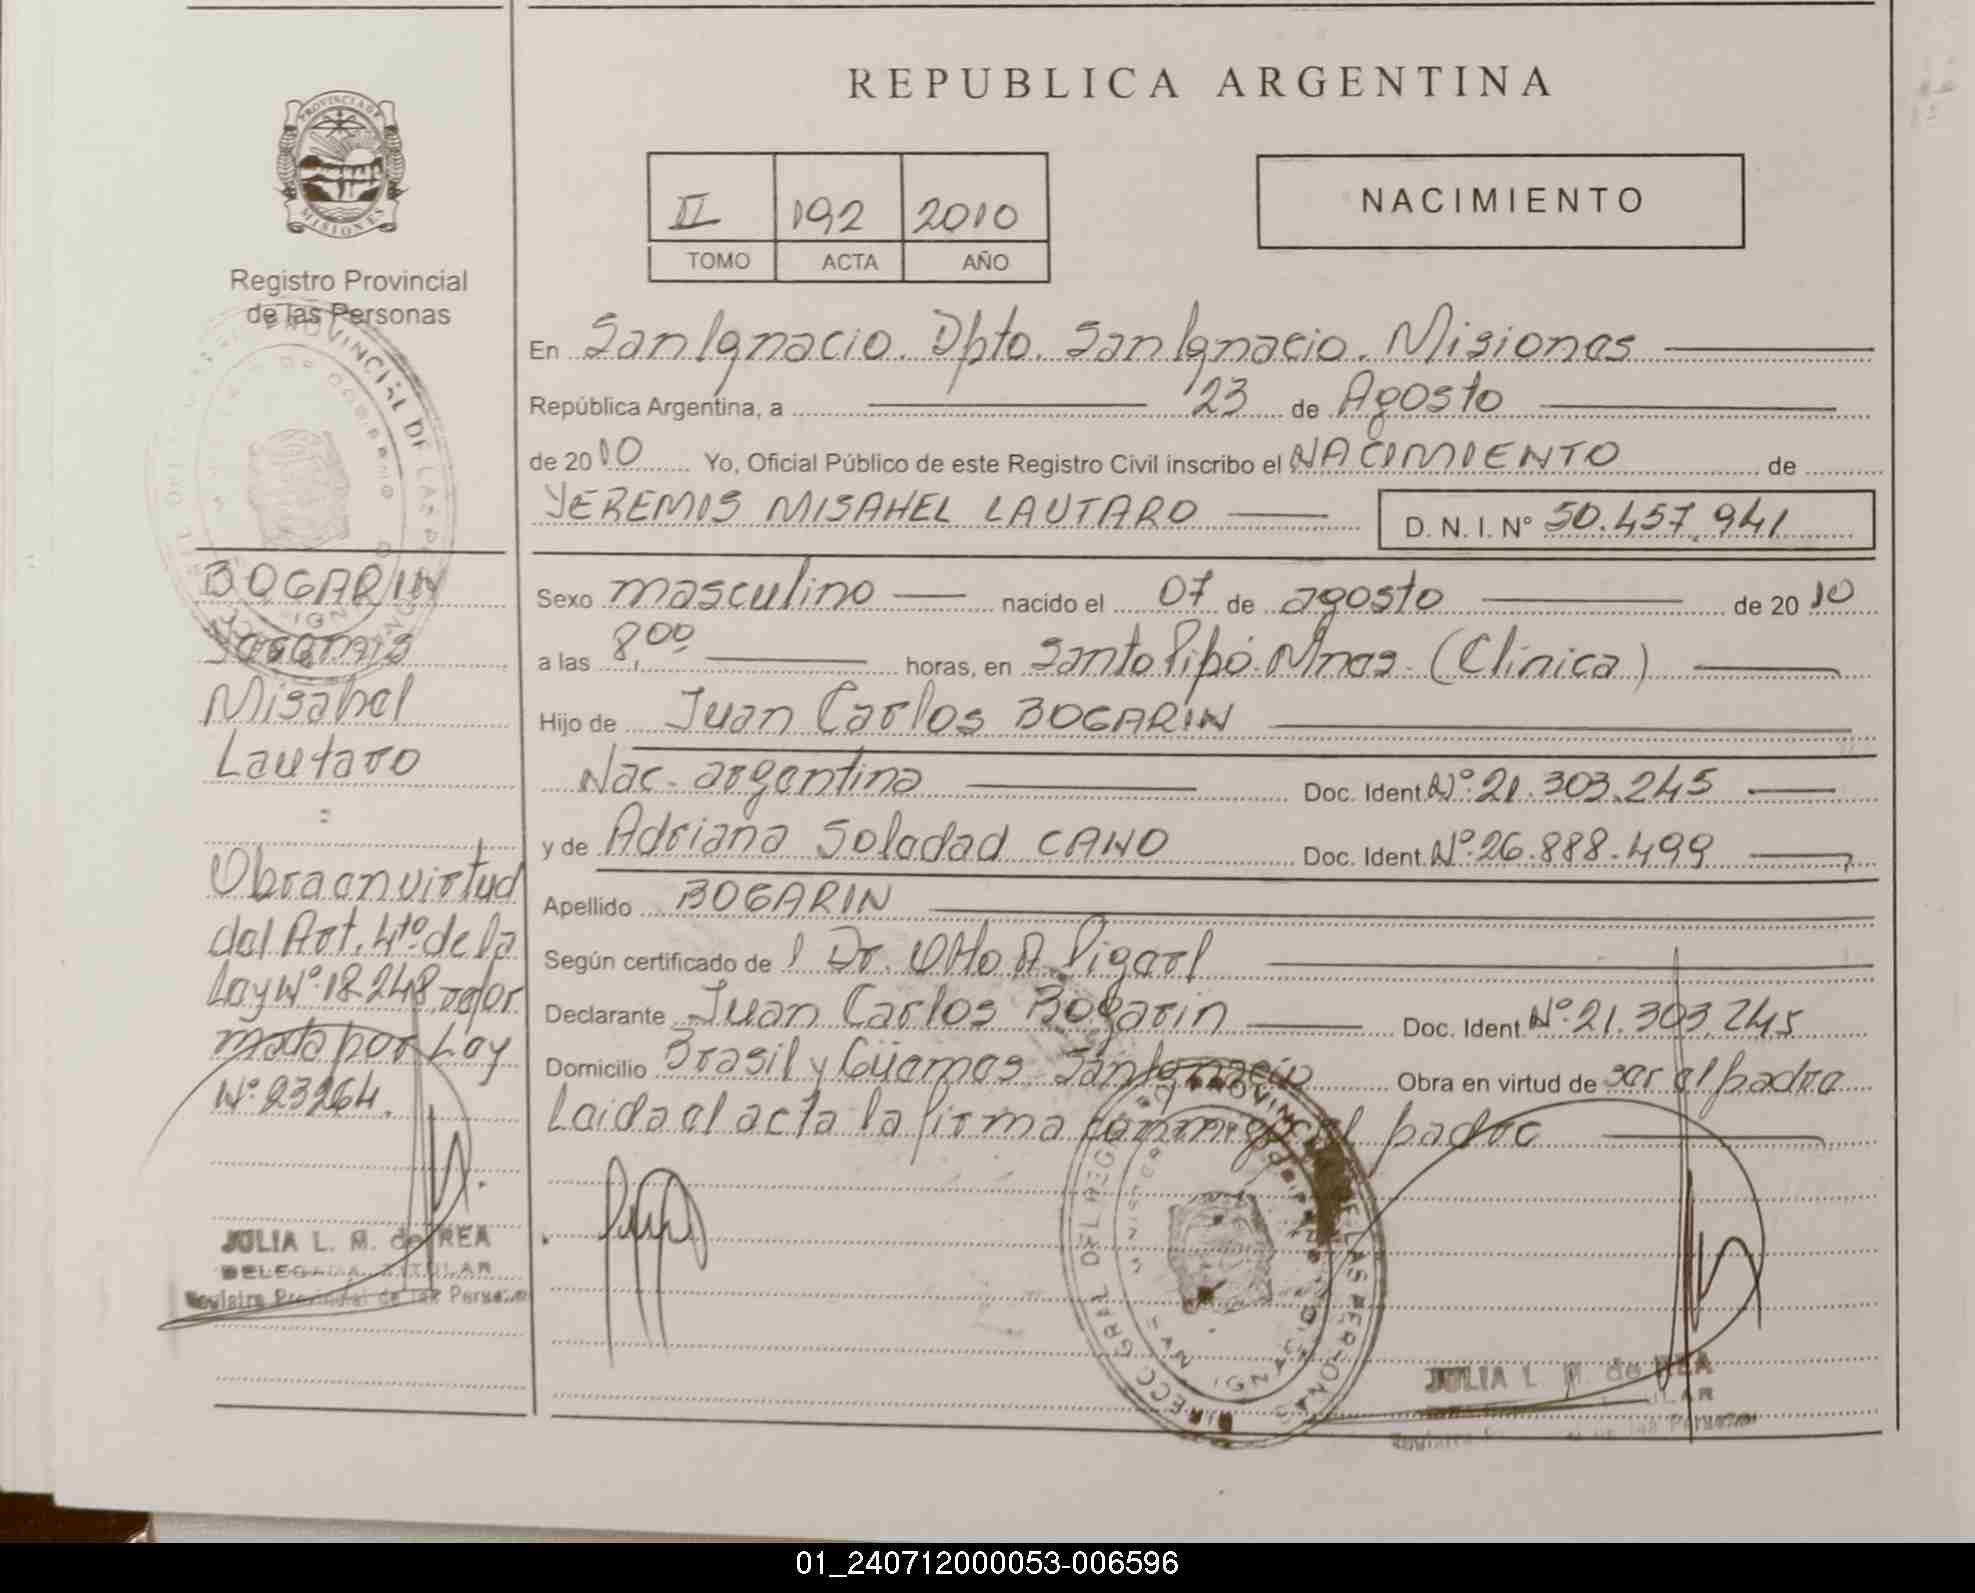 REPUBLICA ARGENTINA
PROVINCIA DE MISIONES
Registro Provincial
de las Personas
II 192 2010
TOMO ACTA AÑO
NACIMIENTO
En San Ignacio. Dpto. San Ignacio. Misiones
República Argentina, a 23 de Agosto
de 2010 Yo, Oficial Público de este Registro Civil inscribo el NACIMIENTO de
YEREMIS MISAHEL LAUTARO D. N. I. N° 50.457.941
Sexo masculino nacido el 07 de agosto de 2010
a las 8,00 horas, en Santo Pipó. Mnes. (Clínica)
Hijo de Juan Carlos BOGARIN
Nac. argentina Doc. Ident. N°: 21.303.245
y de Adriana Soledad CANO Doc. Ident. N°: 26.888.499
Apellido BOGARIN
Según certificado de l Dr. Otto A.
Declarante Juan Carlos Bogarin Doc. Ident. N°: 21.303.245
Domicilio Brasil y Güemes San Ignacio Obra en virtud de ser el padre
Leida el acta la firma conmigo el padre
BOGARIN
Yeremis
Misahel
Lautaro
=
Obra en virtud
del Art. 4to de la
Ley N°: 18.248, refor
mada por Ley
N°: 23264.
JULIA L. M. de REA
DELEGADA TITULAR
Registro Provincial de las Personas
JULIA L. M. de REA
01_240712000053-006596